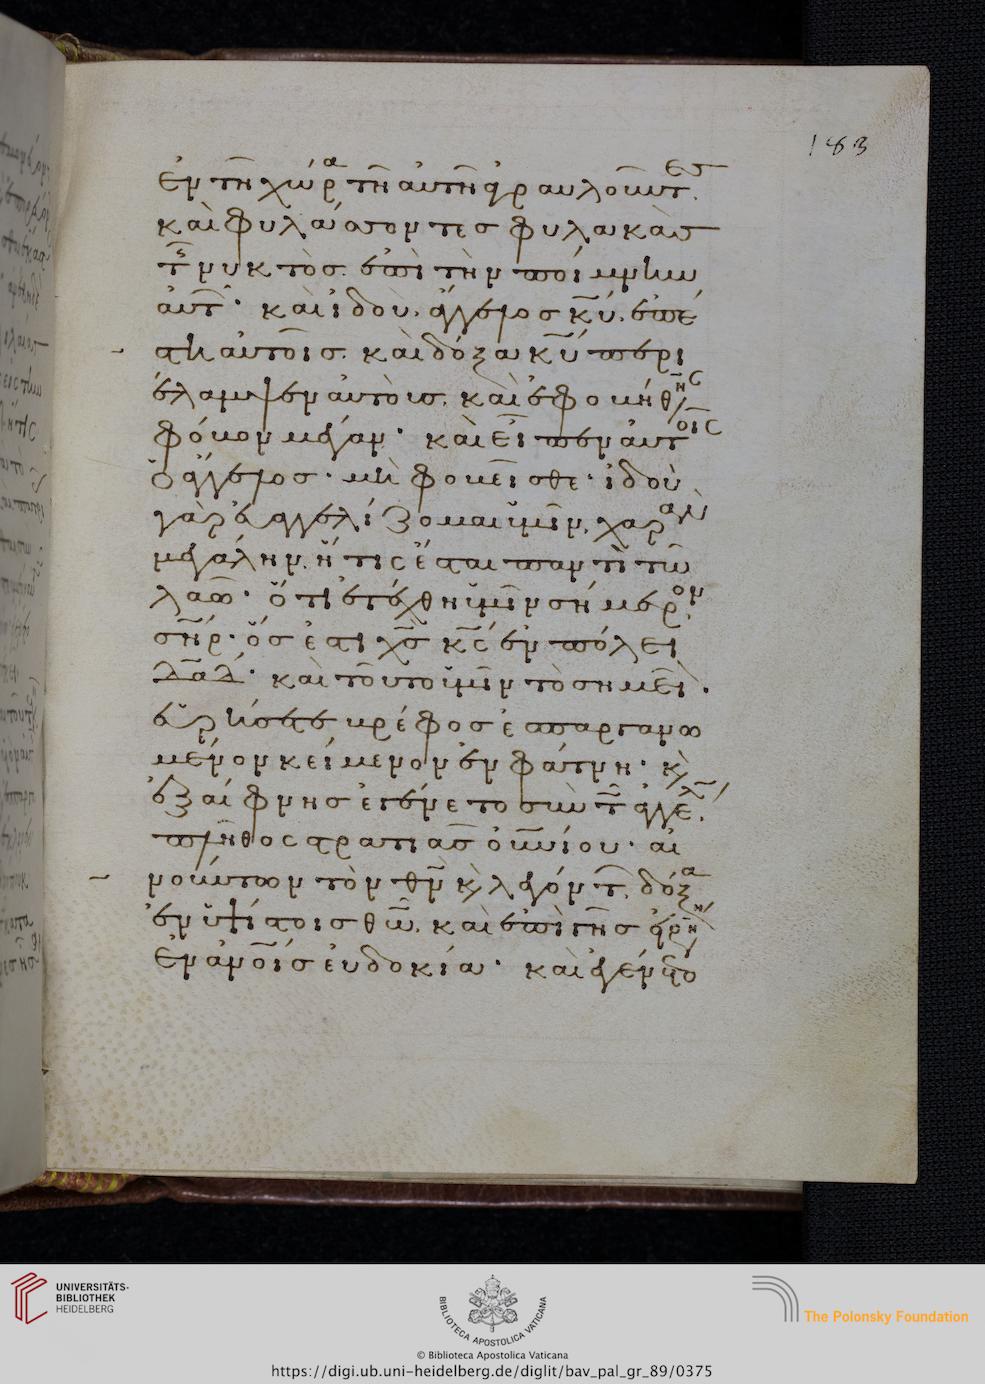 183
ἐν τῆ χώρα τῆ αὐτῆ ἀγραυλοῦντες
καὶ φυλάσσοντες φυλακὰς
τῆς νυκτὸς. ἐπὶ τὴν ποίμνην
αὐτῶν· καὶ ἰδοὺ. ἄγγελος κ̅υ̅. ἐπέ
στη αὐτοῖς. καὶ δόξα κ̅υ̅ περι
έλαμψεν αὐτοὺς. καὶ ἐφοβήθησαν
φόβον μέγαν· καὶ εἶπεν αὐτοῖς
ὁ ἄγγελος· μὴ φοβεῖσθε· ἰδοὺ
γὰρ εὐαγγελίζομαι ὑμῖν, χαρὰν
μεγάλην. ἥτις ἔσται παντὶ τῶ
λαῶ· ὅτι ἐτέχθη ὑμῖν σήμερον
σ̅η̅ρ̅· ὅς ἐστι χ̅ς̅ κ̅ς̅ ἐν πόλει
δ̅α̅δ̅· καὶ τοῦτο ὑμῖν τὸ σημεῖον.
εὑρήσετε βρέφος ἐσπαργανω
μένον κείμενον ἐν φάτνη· κ̀
ἐξαίφνης ἐγένετο σὺν τῶ ἀγγέλω
πλῆθος στρατιᾶς οὐ̅ν̅ίου· αἰ
νούντων τὸν θ̅ν̅ κ̀ λεγόντων. δόξα
ἐν ὑψίστοις θ̅ω̅. καὶ ἐπὶ γῆς εἰρήνη
ἐν ἀ̅ν̅οῖς εὐδοκία· καὶ ἐγένετο
UNIVERSITÄTS-
BIBLIOTHEK
HEIDELBERG
BIBLIOTECA APOSTOLICA VATICANA
The Polonsky Foundation
© Biblioteca Apostolica Vaticana
https://digi.ub.uni-heidelberg.de/diglit/bav_pal_gr_89/0375